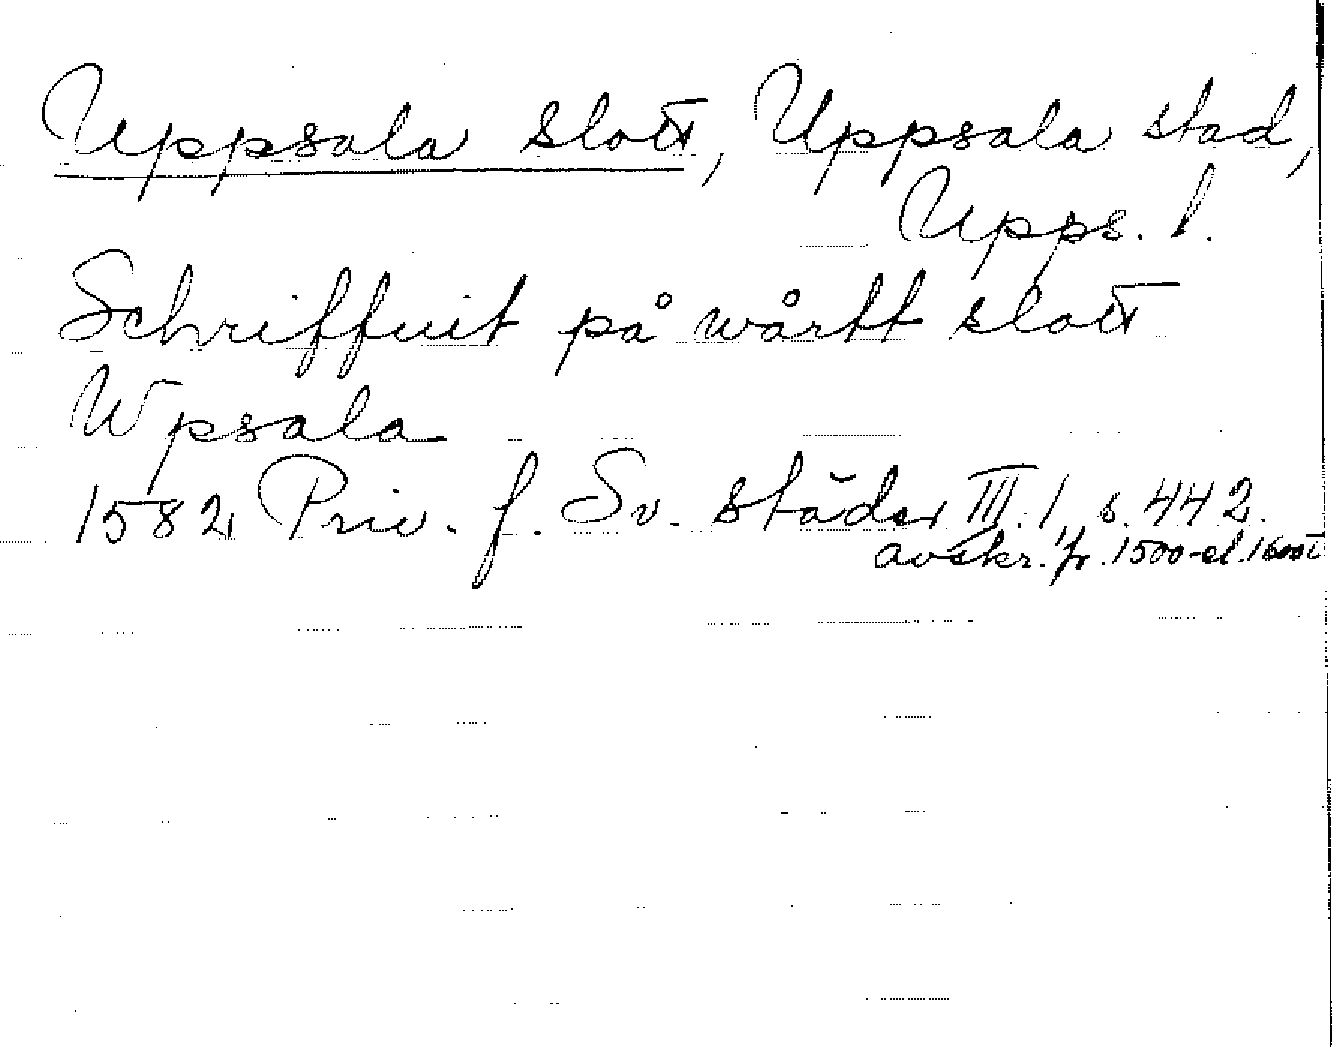 Uppsala slott, Uppsala stad,
Upps. l.
Schriffuit på wårtt slott
Wpsala
1582 Priv. f. Sv. städer III.1, s. 442.
avskr. fr. 1500-el. 1600t